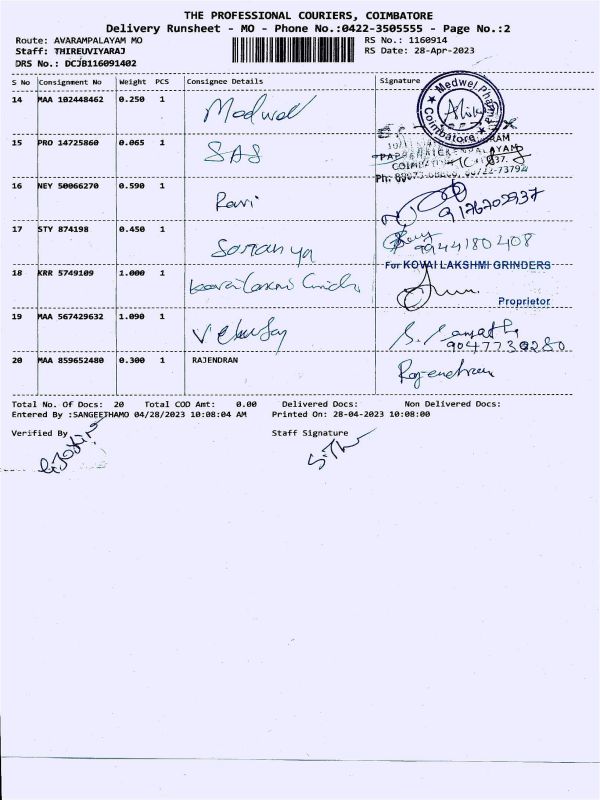 THE PROFESSIONAL COURIERS, COIMBATORE
Delivery Runsheet - MO - Phone No.:0422-3505555 - Page No.:2
Route: AVARAMPALAYAM MO
RS No.: 1160914
Staff: THIREUVIYARAJ
RS Date: 28-Apr-2023
DRS No.: DCJB116091402
S No Consignment No Weight PCS Consignee Details Signature
14 MAA 102448462 0.250 1 Medwel
Medwel Pharma
Coimbatore
15 PRO 14725860 0.065 1 SAS
16 NEY 50066270 0.590 1 Ravi
9176702937
17 STY 874198 0.450 1 Saranya
9944180408
18 KRR 5749109 1.000 1
For KOVAI LAKSHMI GRINDERS
Proprietor
19 MAA 567429632 1.090 1
9047730280
20 MAA 859652480 0.300 1 RAJENDRAN Rajendran
Total No. Of Docs: 20 Total COD Amt: 0.00 Delivered Docs: Non Delivered Docs:
Entered By :SANGEETHAMO 04/28/2023 10:08:04 AM Printed On: 28-04-2023 10:08:00
Verified By Staff Signature